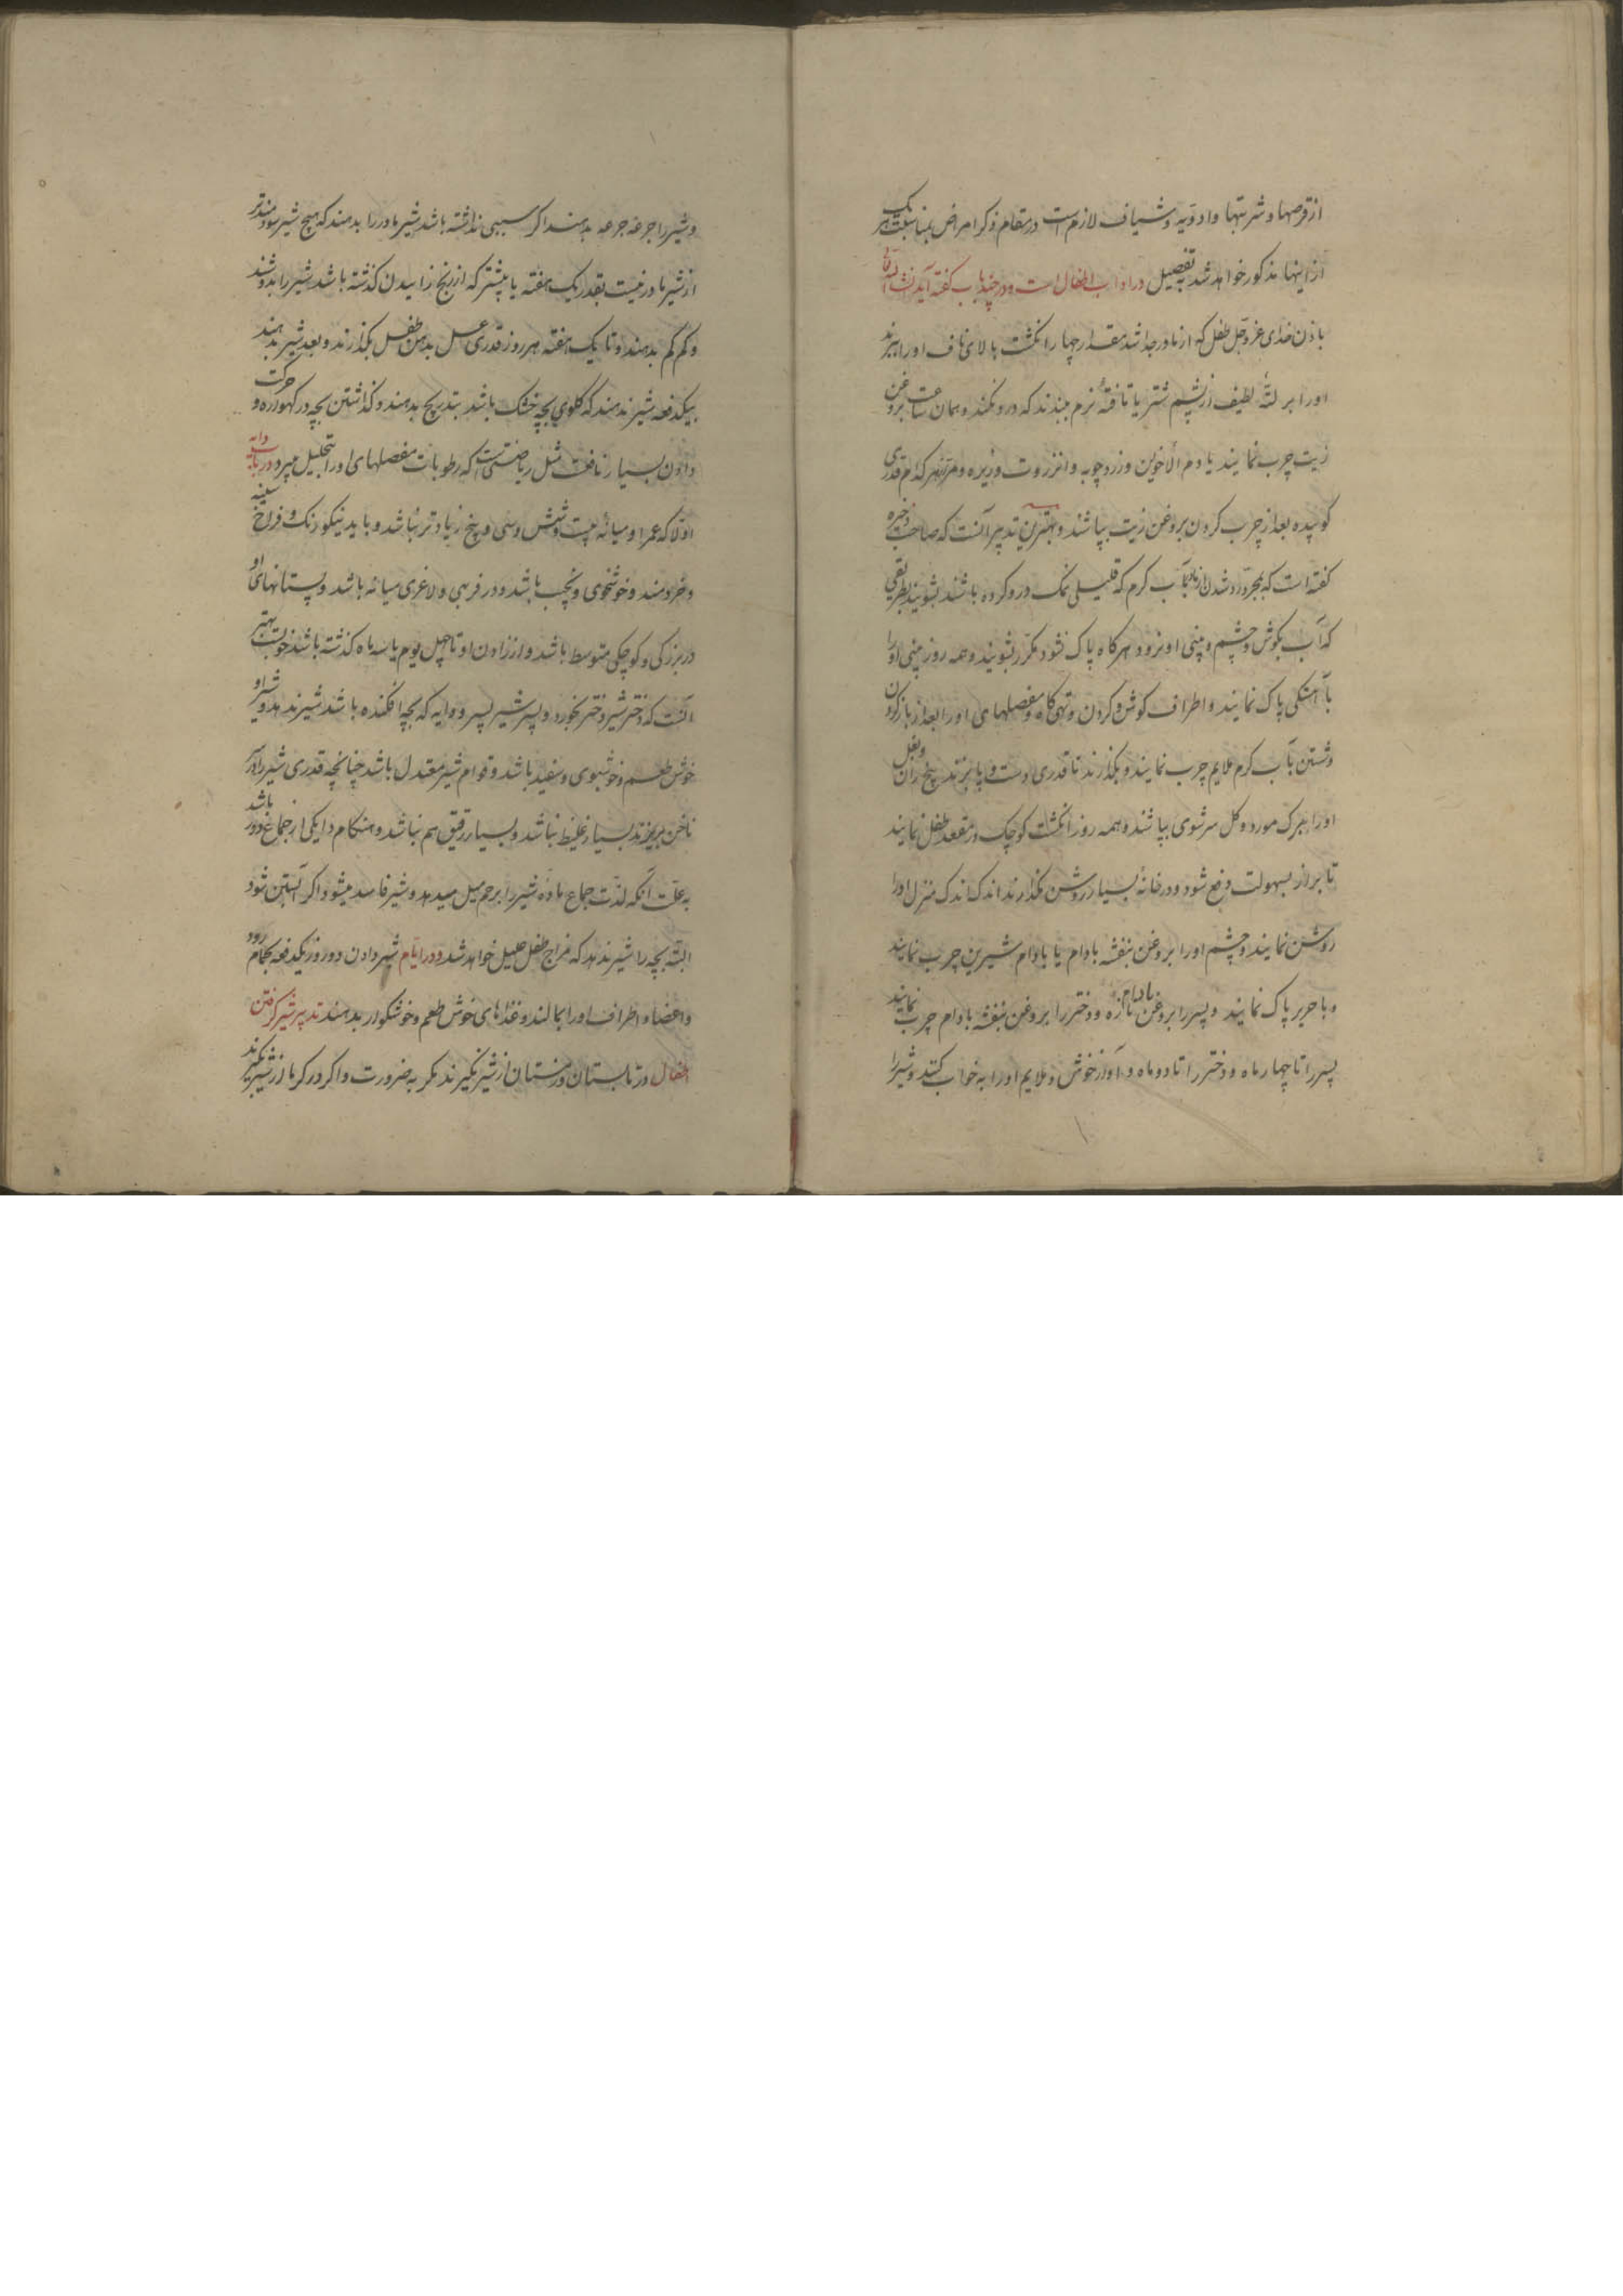 از قرصها و شربتها و ادویه و شیاف لازم است در مقام ذکر امراض بمناسبت هر یک
از اینها مذکور خواهد شد به تفصیل در اداب اطفال است و در چند باب گفته آید انشاالله
باذن خدای عز و جل طفل که از مادر جدا شد مقدار چهار انکشت بالای ناف او را ببرند
او را بر لتهٔ لطیف از پشم شتر یا تافتهٔ نرم ببندند که درد نکند و همان ساعت بروغن
زیت چرب نمایند یا دم الاخوین و زردچوبه و انزروت و زیره و مر از هر کدام قدری
کوبیده بعد از چرب کردن بروغن زیت بپاشند و بهترین تدبیر آنست که صاحب ذخیره
کفته است که بمجرد زاده شدن از مادر بآب کرم که قلیلی نمک در او کرده باشند بشویند بطریقی
که آب بکوش و چشم و بینی او نرود و هرکاه پاک نشود مکرر بشویند و همه روز بینی او را
بآهستکی پاک نمایند و اطراف کوش و کردن و تهی کاه و مفصلهای او را بعد از باز کردن
و شستن بآب کرم ملایم چرب نمایند و بکذارند تا قدری دست و پا بزند بیخ ران و بغل
او را ببرک مورد و کل سرشوی بپاشند و همه روز انکشت کوچک در مقعد طفل نمایند
تا براز بسهولت دفع شود و در خانهٔ بسیار روشن نکذارند اندک اندک منزل او را
روشن نمایند و چشم او را بروغن بنفشه بادام یا بادام شیرین چرب نمایند
و با حریر پاک نمایند و پسر را بروغن بادام تازه و دختر را بروغن بنفشه بادام چرب نمایند
پسر را تا چهار ماه و دختر را تا دو ماه و آواز خوش و ملایم او را به خواب کنند و شیر را
و شیر را جرعه جرعه بدهند اکر سببی نداشته باشد شیر مادر را بدهند که هیچ شیر سودمندتر
از شیر مادر نیست بقدر یک هفته یا بیشتر که از رنج زاییدن کذشته باشد شیر را بدوشند
و کم کم بدهند و تا یک هفته هر روز قدری عسل بدهن طفل بکذارند و بعد شیر بدهند
بیکدفعه شیر ندهند که کلوی بچه خشک باشد بتدریج بدهند و کذاشتن بچه در کهواره و حرکت
دادن بسیار نافعست مثل ریاضتی است که رطوبات مفصلهای او را بتحلیل میبرد در باب دایه
اولا که عمر او میانه بیست و شش و سی و پنج زیادتر نباشد و باید نیکو رنک و فراخ سینه
و خردمند و خوشخوی و نجیب باشد و در فربهی و لاغری میانه باشد و پستانهای او
در بزرکی و کوچکی متوسط باشد و از زادن او تا چهل یوم یا سه ماه کذشته باشد خوبست بهتر
آنست که دختر شیر دختر بخورد و پسر شیر پسر و دایه که بچه افکنده باشد شیر ندهد و شیر او
خوش طعم و خوشبوی و سفید باشد و قوام شیر معتدل باشد چنانچه قدری شیر را بر
ناخن بریزند بسیار غلیظ نباشد و بسیار رقیق هم نباشد و هنکام دایکی از جماع دور باشد
به علت آنکه لذت جماع ماده شیر را برحم میل میدهد و شیر فاسد میشود اکر آبستن شود
البته بچه را شیر ندهد که مزاج طفل علیل خواهد شد و در ایام شیر دادن دو روز یکدفعه بحمام رود
و اعضا و اطراف او را بمالند و غذاهای خوش طعم و خوشکوار بدهند تدبیر شیر کرفتن
اطفال در تابستان و زمستان از شیر نکیرند مکر به ضرورت و اکر در کرما از شیر بکیرند